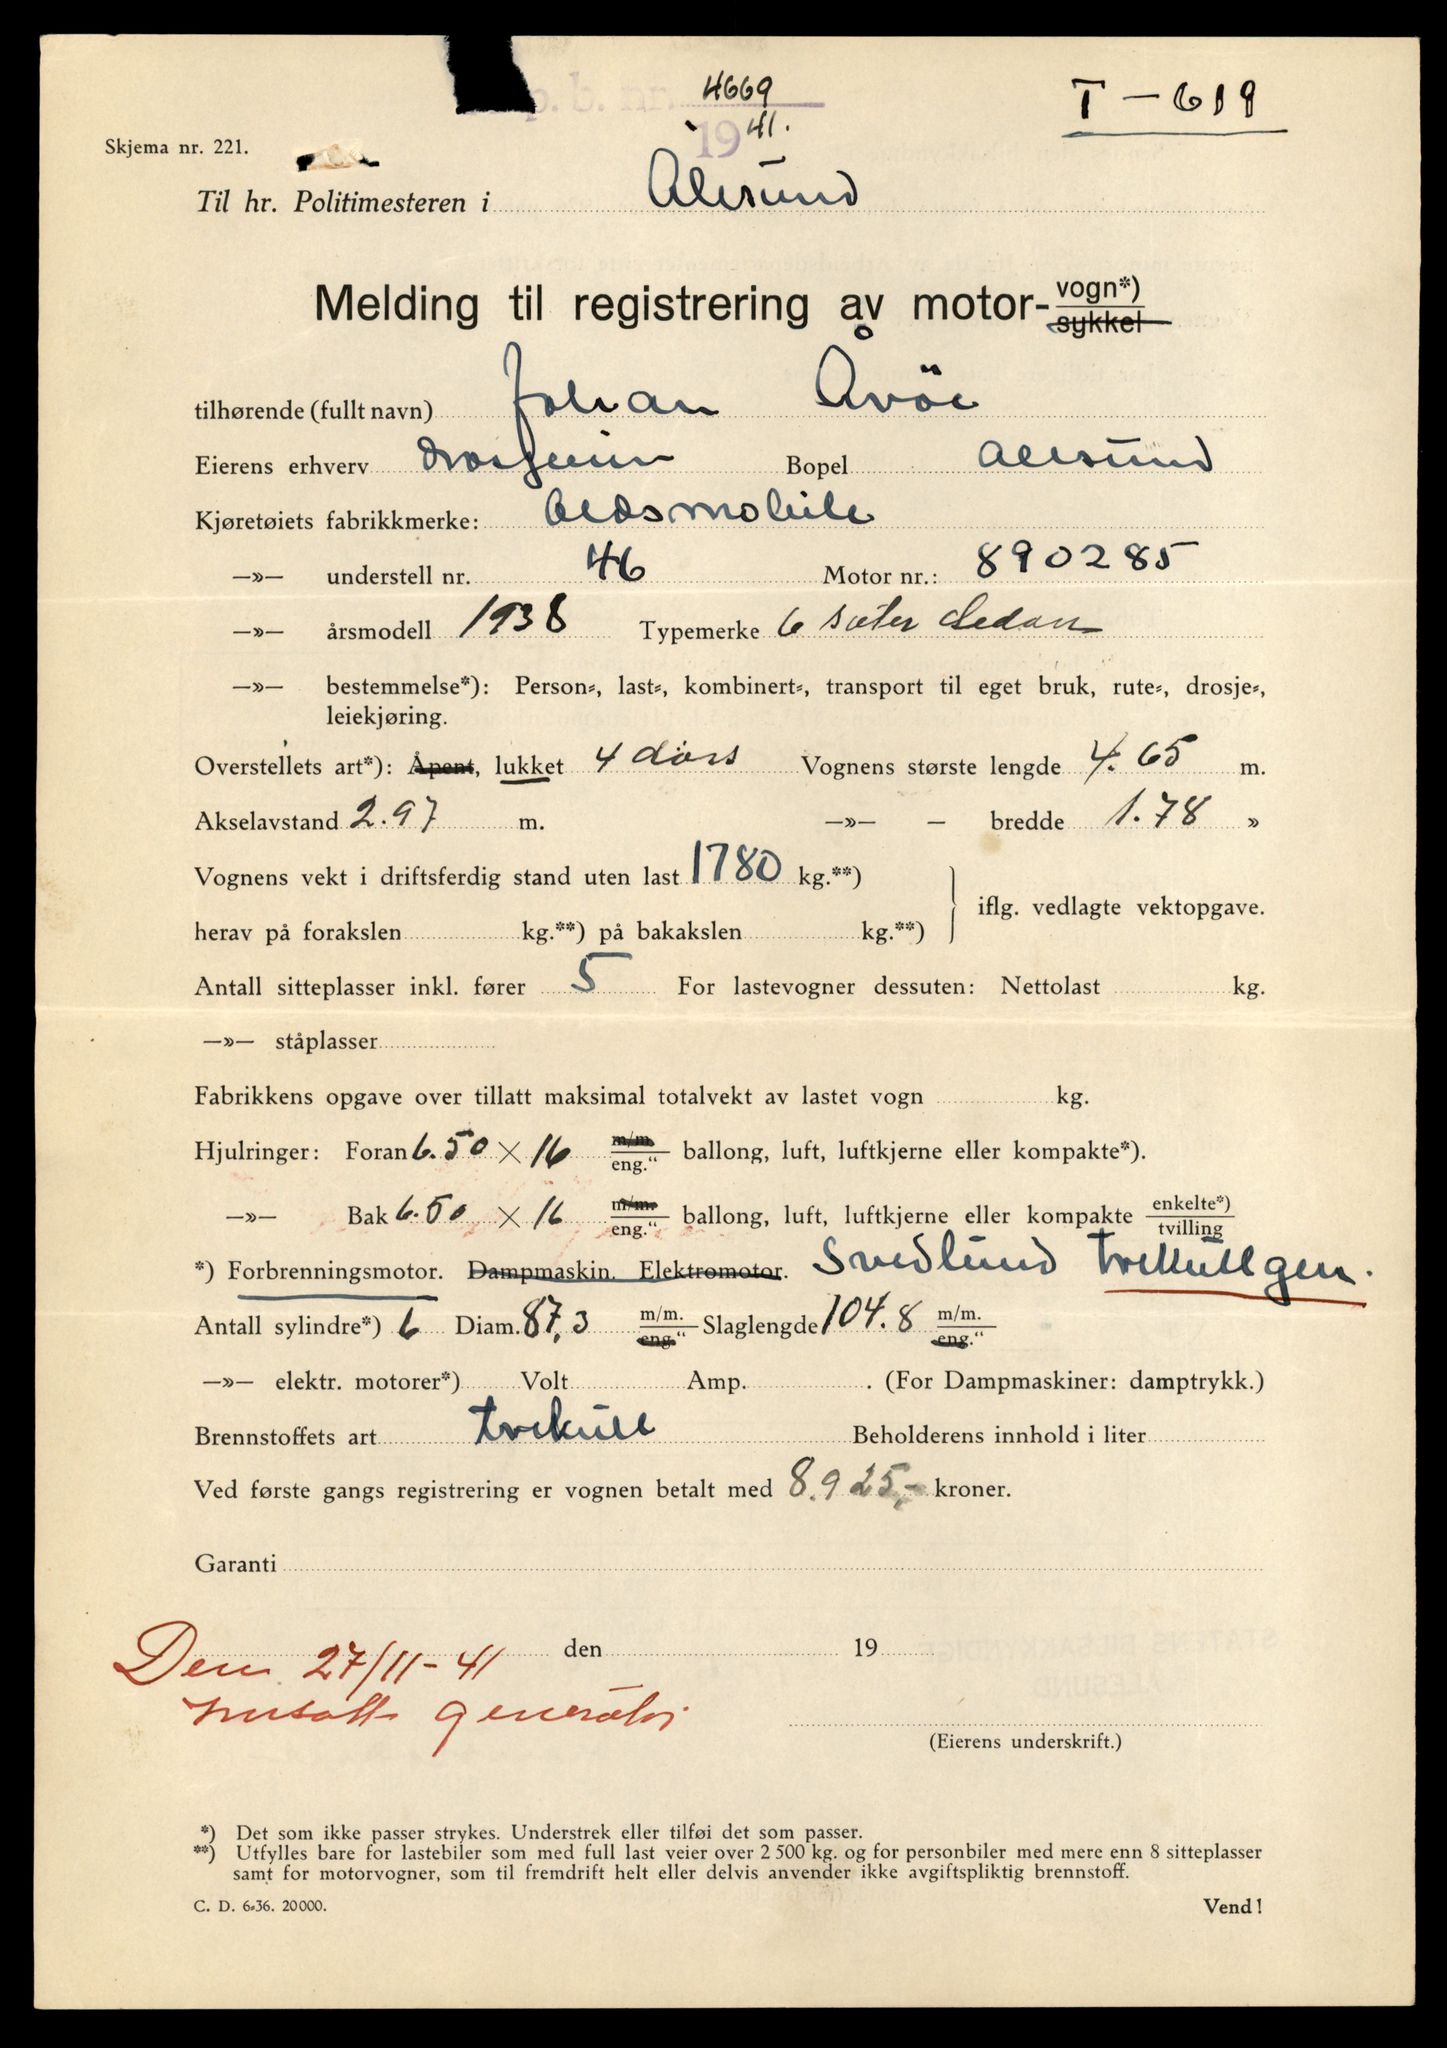 p. b. nr. 4669
19 41.
T - 619
Skjema nr. 221.
Til hr. Politimesteren i Ålesund
Melding til registrering av motor- vogn*)
sykkel
tilhørende (fullt navn) Johan Åvöe
Eierens erhverv Bopel Ålesund
Kjøretøiets fabrikkmerke: Oldsmobile
—»— understell nr. 46 Motor nr.: 890285
—»— årsmodell 1938 Typemerke 6 seter Sedan
—»— bestemmelse*): Person-, last-, kombinert-, transport til eget bruk, rute-, drosje-,
leiekjøring.
Overstellets art*): Åpent, lukket 4 dørs Vognens største lengde 4.65 m.
Akselavstand 2.97 m. —»— – bredde 1.78 »
Vognens vekt i driftsferdig stand uten last 1780 kg.**)
herav på forakslen kg.**) på bakakslen kg.**)
iflg. vedlagte vektopgave.
Antall sitteplasser inkl. fører 5 For lastevogner dessuten: Nettolast kg.
—»— ståplasser
Fabrikkens opgave over tillatt maksimal totalvekt av lastet vogn kg.
Hjulringer: Foran 6.50 × 16 m/m. eng.“ ballong, luft, luftkjerne eller kompakte*).
—»— Bak 6.50 × 16 m/m. eng.“ ballong, luft, luftkjerne eller kompakte enkelte*) tvilling
*) Forbrenningsmotor. Dampmaskin. Elektromotor. Svedlund trekullgen.
Antall sylindre*) 6 Diam. 87,3 m/m. eng.“ Slaglengde 104.8 m/m. eng.“
—»— elektr. motorer*) Volt Amp. . (For Dampmaskiner: damptrykk.)
Brennstoffets art trekull Beholderens innhold i liter
Ved første gangs registrering er vognen betalt med 8.925,- kroner.
Garanti
den 19
Den 27/11-41
innsatt generator
(Eierens underskrift.)
*) Det som ikke passer strykes. Understrek eller tilføi det som passer.
**) Utfylles bare for lastebiler som med full last veier over 2 500 kg. og for personbiler med mere enn 8 sitteplasser
samt for motorvogner, som til fremdrift helt eller delvis anvender ikke avgiftspliktig brennstoff.
C. D. 6-36. 20000. Vend!